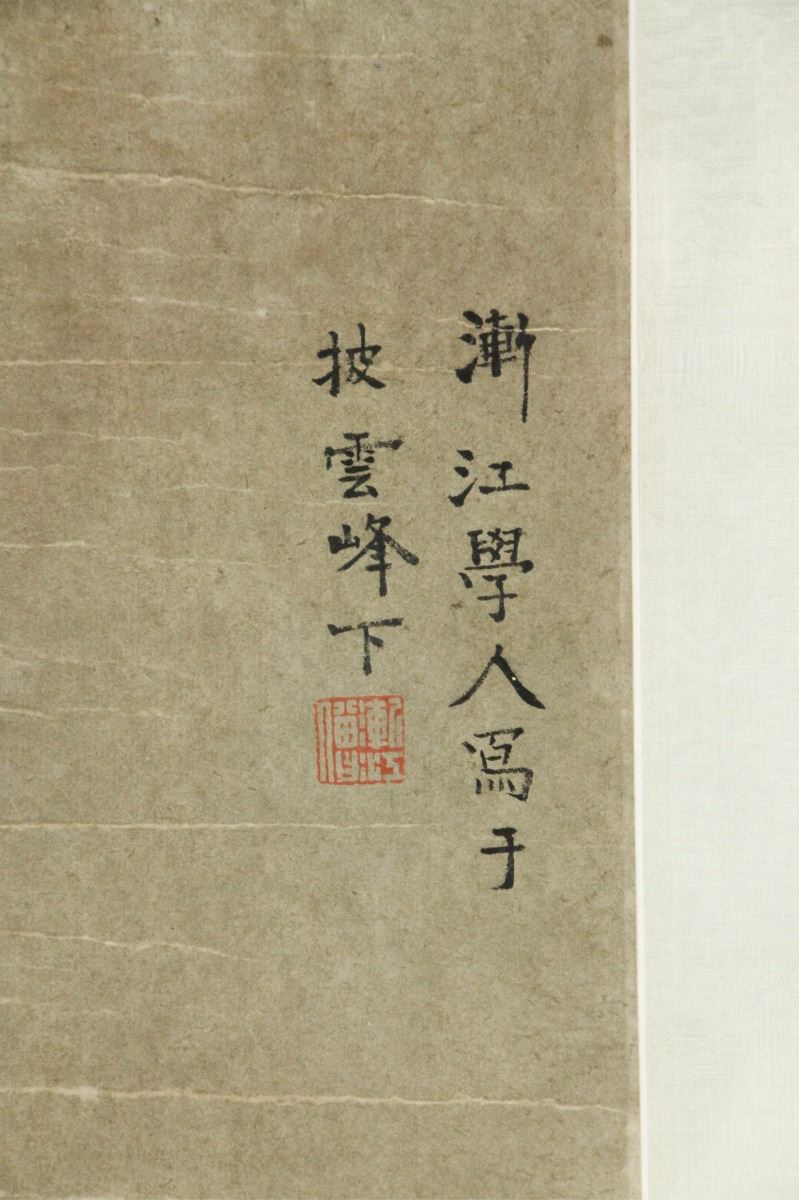 漸江學人寫于
披雲峰下
漸江僧